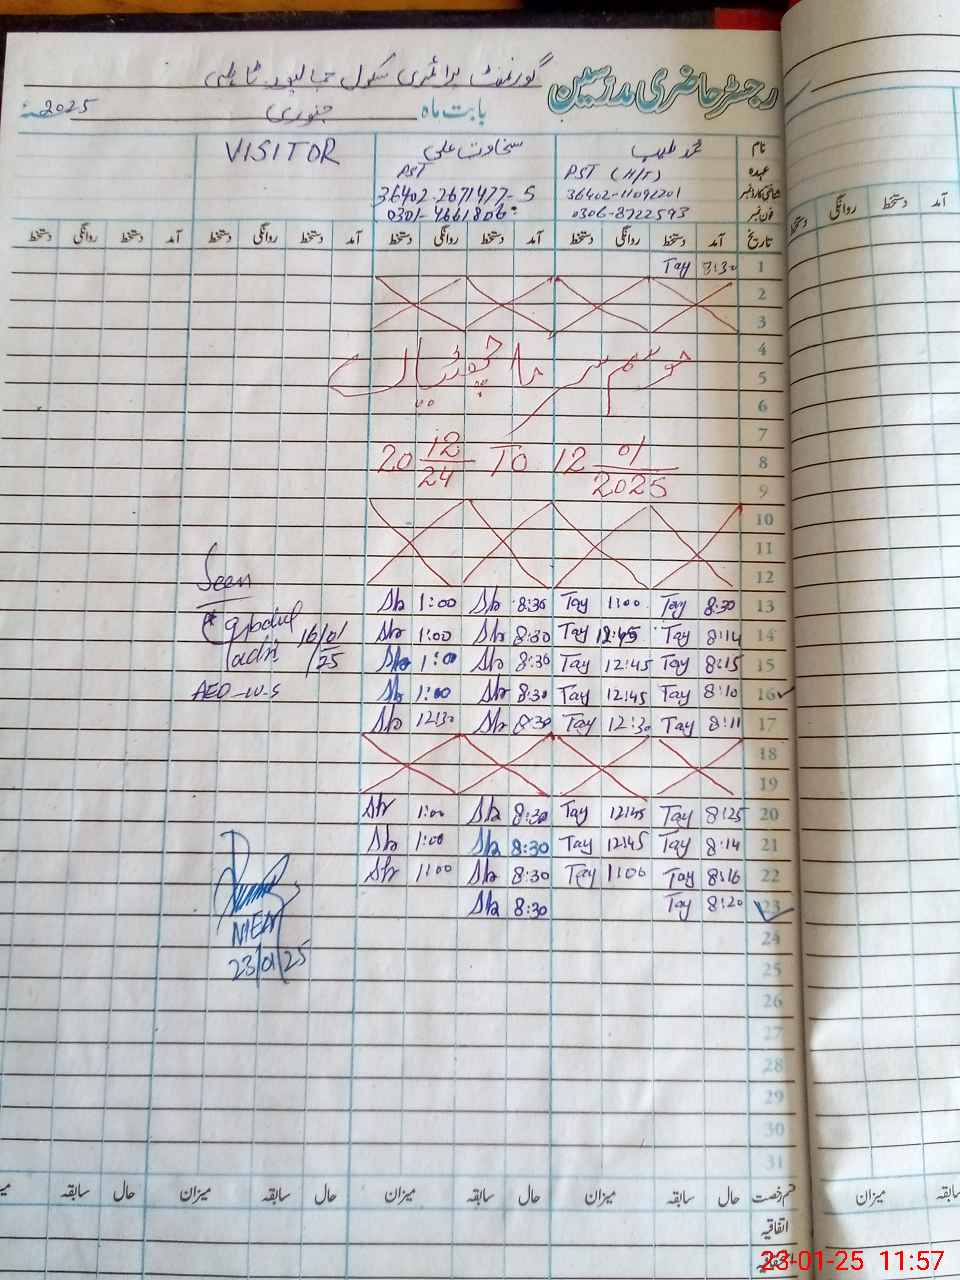 رجسٹر حاضری مدرسین گورنمنٹ پرائمری سکول جمالپور
بابت ماہ جنوری 2025ء
نام محمد طیب سخاوت علی VISITOR
عہدہ PST (H/T) PST
شناختی کارڈ نمبر 36402-11092201 36402-2671477-5
فون نمبر 0306-8722593 0301-4661806
تاریخ آمد دستخط روانگی دستخط آمد دستخط روانگی دستخط آمد دستخط روانگی دستخط آمد دستخط روانگی دستخط
1 8:30 Tay
2
3
4
موسم سرما چھٹیاں
5
6
7
8
20 12/24 TO 12 01/2025
9
10
11
12
13 8:30 Tay 1:00 Tay 8:30 Sh 1:00 Sh
14 8:14 Tay 12:45 Tay 8:30 Sh 1:00 Sh
15 8:15 Tay 12:45 Tay 8:30 Sh 1:00 Sh
16 8:10 Tay 12:45 Tay 8:30 Sh 1:00 Sh
17 8:11 Tay 12:30 Tay 8:30 Sh 12:30 Sh
18
19
20 8:25 Tay 12:45 Tay 8:30 Sh 1:00 Sh
21 8:14 Tay 12:45 Tay 8:30 Sh 1:00 Sh
22 8:16 Tay 1:00 Tay 8:30 Sh 1:00 Sh
23 8:20 Tay 8:30 Sh
24
25
26
27
28
29
30
31
Seen
16/01/25
AEO-W-S
MEA
23/01/25
قسم رخصت حال سابقہ میزان حال سابقہ میزان حال سابقہ میزان حال سابقہ
اتفاقیہ
آمد دستخط روانگی دستخط
سابقہ میزان
23-01-25 11:57